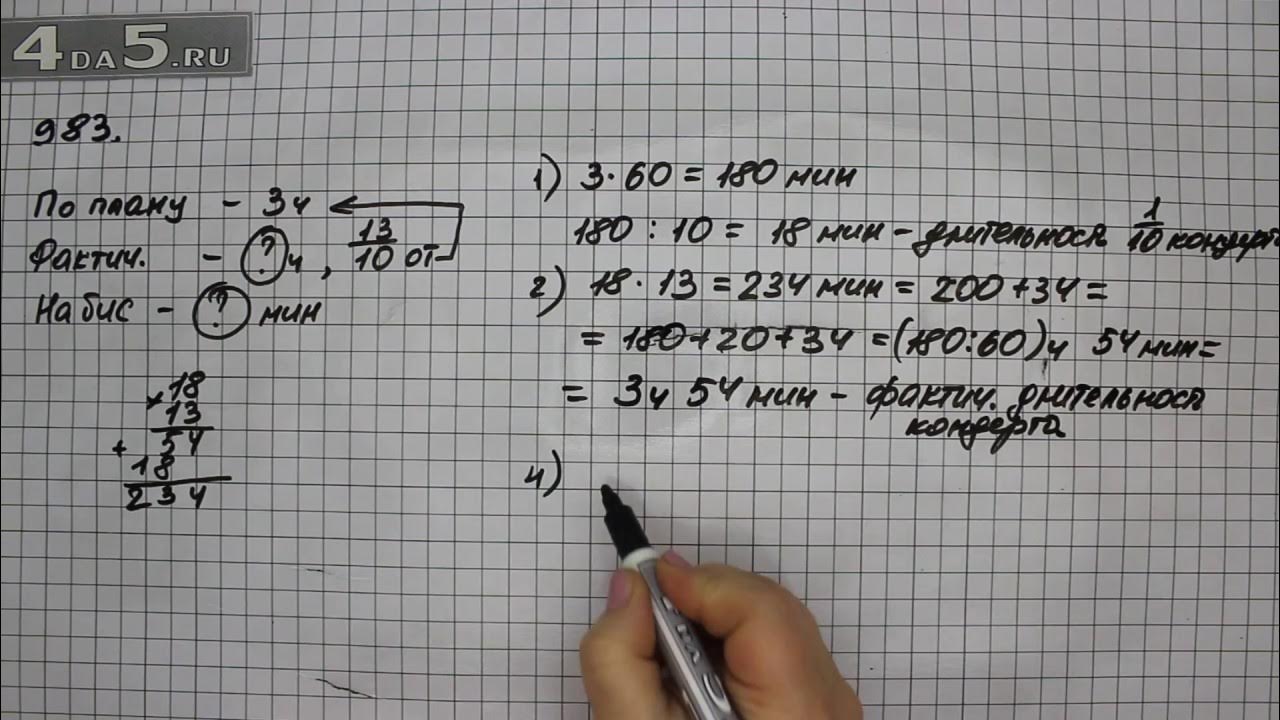 4DA5.RU
983.
По плану - 3ч
Фактич. - ?ч, 13/10 от
На бис - ? мин
× 18
13
+ 54
18
234
1) 3·60 = 180 мин
180 : 10 = 18 мин - длительность 1/10 концерт
2) 18·13 = 234 мин = 200+34 =
= 180+20+34 = (180:60)ч 54 мин =
= 3ч 54 мин - фактич. длительность
концерта
4)